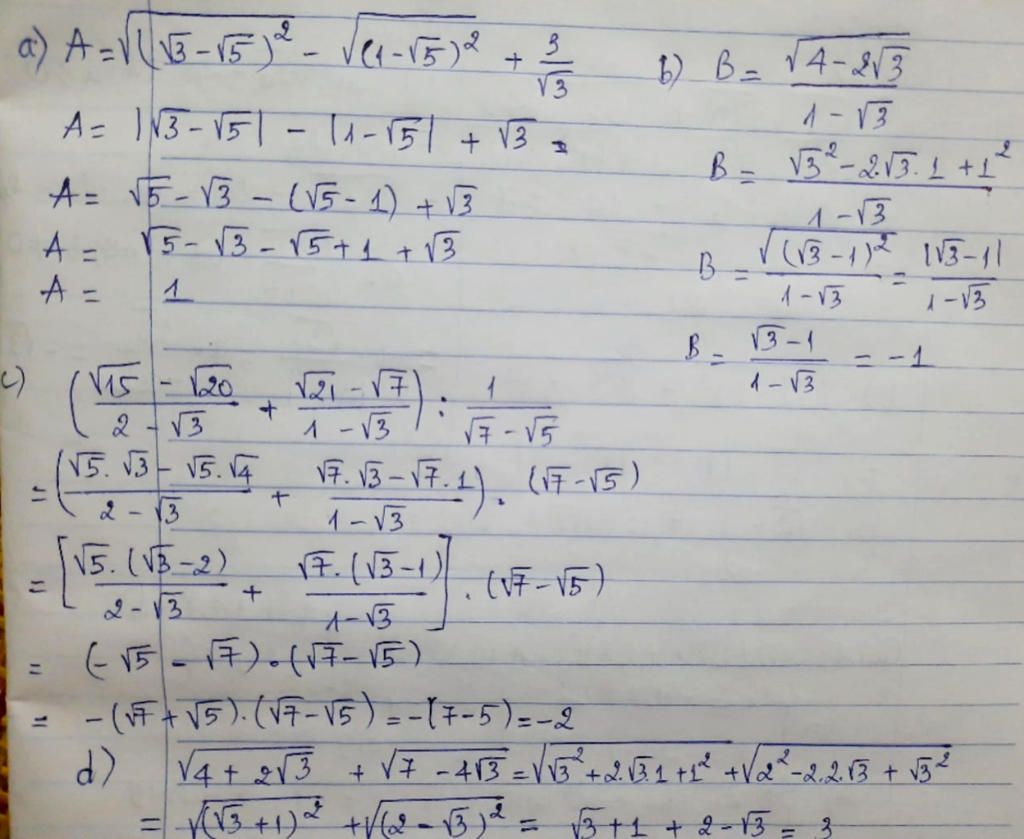 a) A = √(√3 - √5)² - √(1 - √5)² + 3/√3
A = |√3 - √5| - |1 - √5| + √3
A = √5 - √3 - (√5 - 1) + √3
A = √5 - √3 - √5 + 1 + √3
A = 1
b) B = √(4 - 2√3) / (1 - √3)
B = (√3² - 2.√3.1 + 1²) / (1 - √3)
B = √(√3 - 1)² / (1 - √3) = |√3 - 1| / (1 - √3)
B = (√3 - 1) / (1 - √3) = -1
c) ((√15 - √20) / (2 - √3) + (√21 - √7) / (1 - √3)) : 1 / (√7 - √5)
= ((√5.√3 - √5.√4) / (2 - √3) + (√7.√3 - √7.1) / (1 - √3)) . (√7 - √5)
= [√5.(√3 - 2) / (2 - √3) + √7.(√3 - 1) / (1 - √3)] . (√7 - √5)
= (-√5 - √7).(√7 - √5)
= -(√7 + √5).(√7 - √5) = -(7 - 5) = -2
d) √(4 + 2√3) + √(7 - 4√3) = √(√3² + 2.√3.1 + 1²) + √(2² - 2.2.√3 + √3²)
= √(√3 + 1)² + √(2 - √3)² = √3 + 1 + 2 - √3 = 3